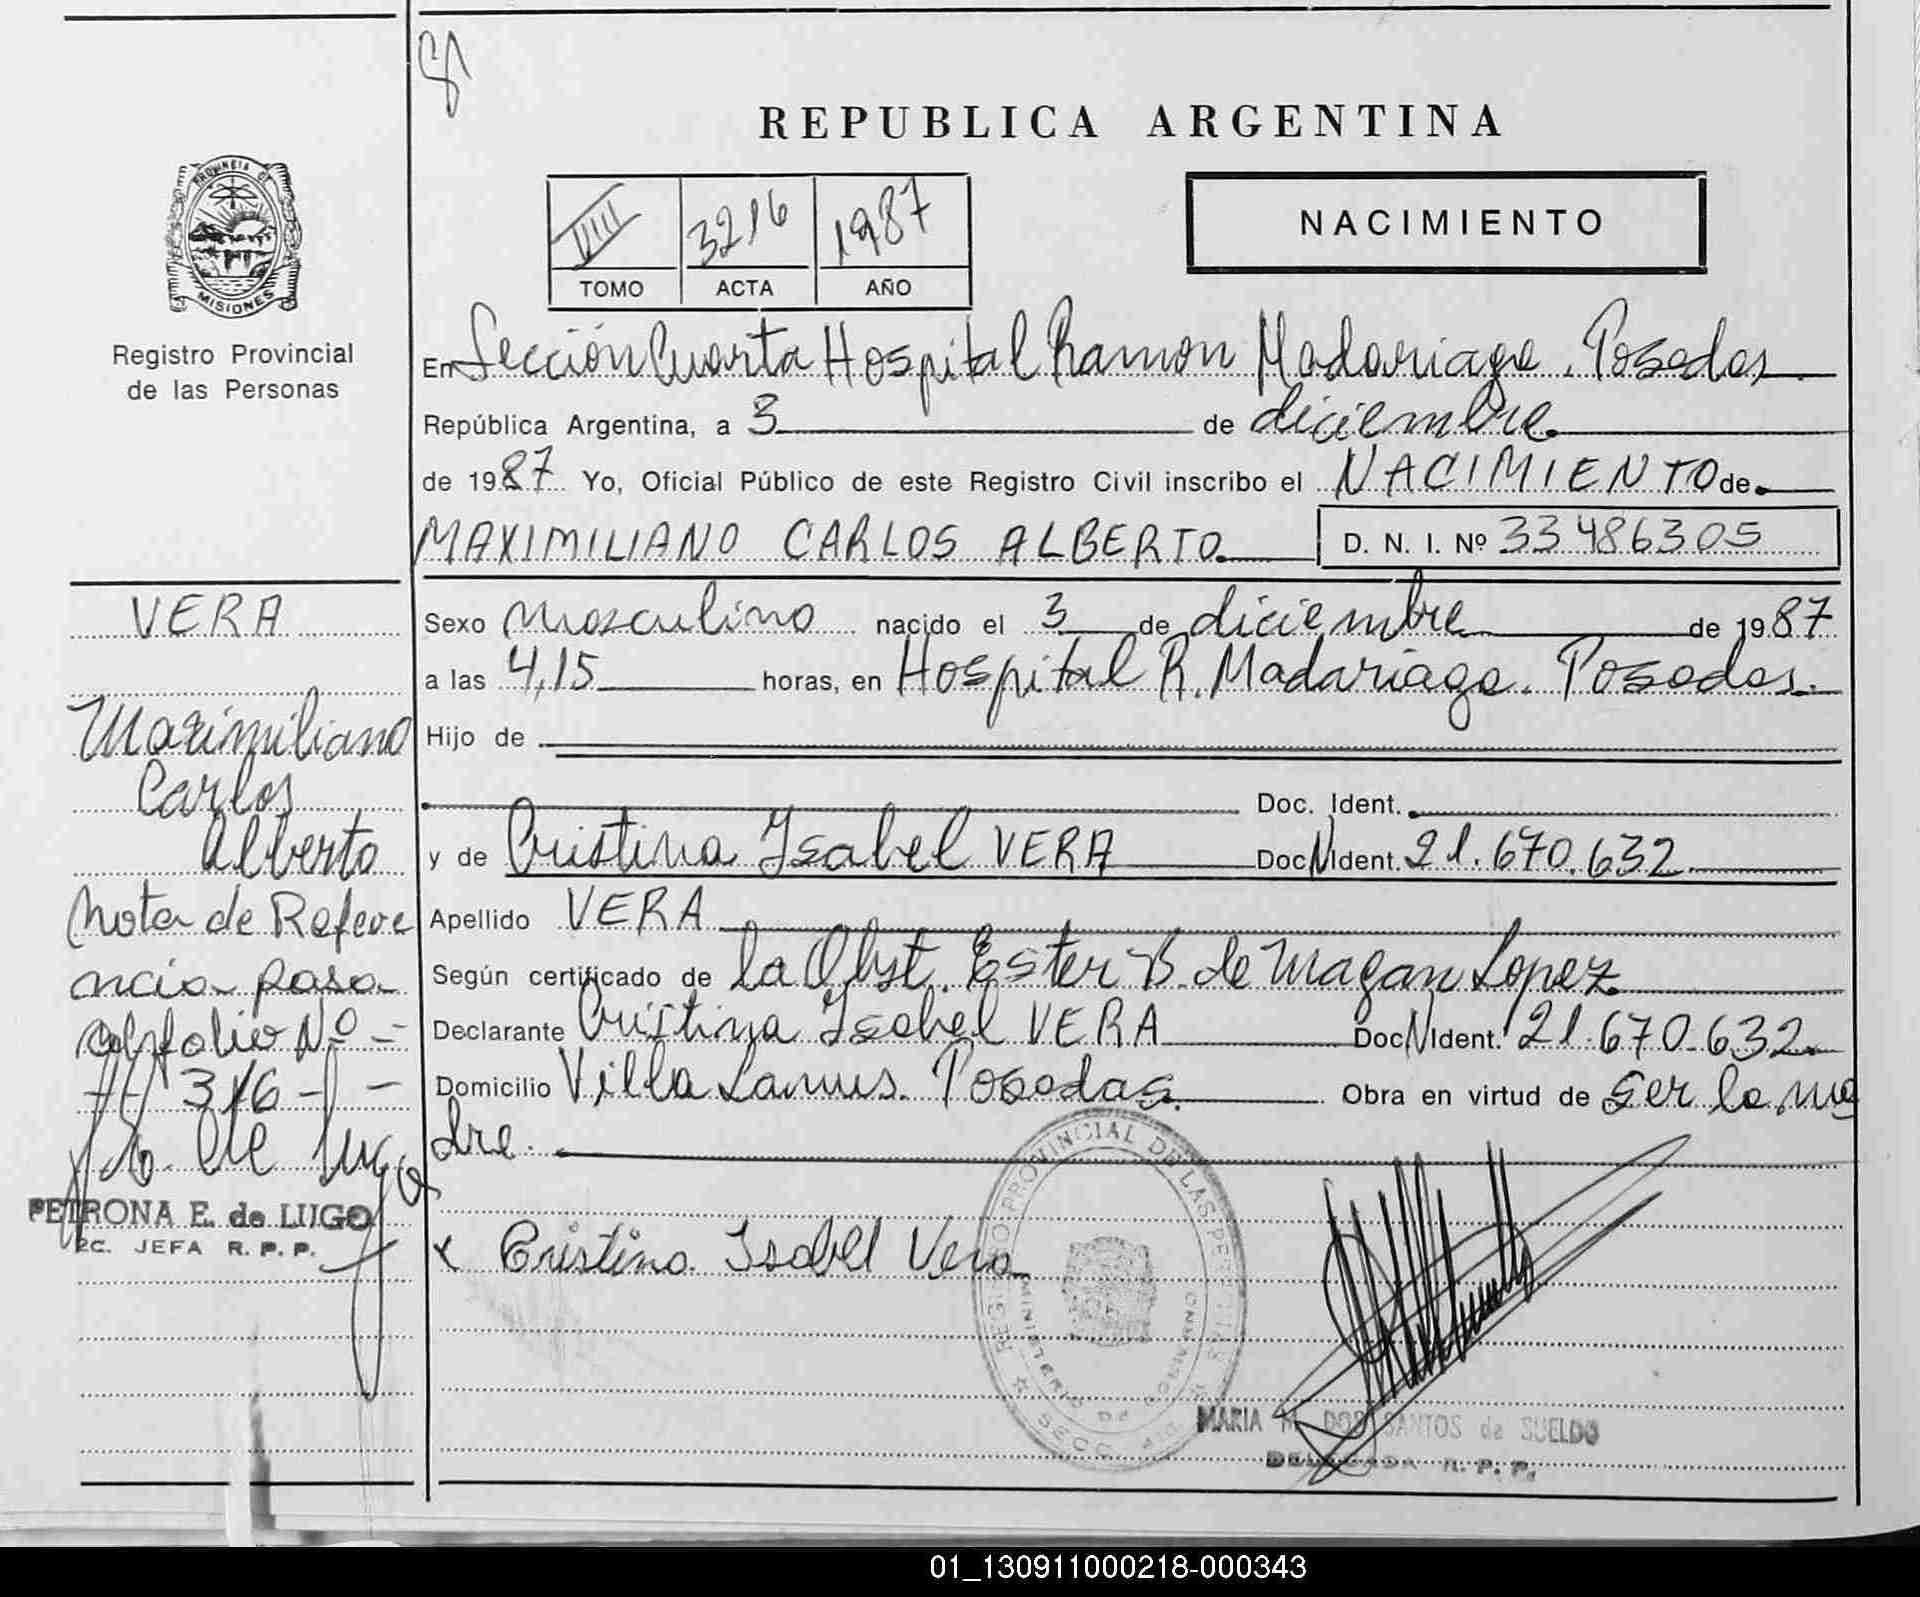 REPUBLICA ARGENTINA
PROVINCIA DE
MISIONES
Registro Provincial
de las Personas
VIII 3216 1987
TOMO ACTA AÑO
NACIMIENTO
En Sección Cuarta Hospital Ramon Madariaga. Posadas
República Argentina, a 3 de diciembre
de 1987 Yo, Oficial Público de este Registro Civil inscribo el NACIMIENTO de
MAXIMILIANO CARLOS ALBERTO D. N. I. Nº 33486305
VERA
Maximiliano
Carlos
Alberto
Nota de Refere
ncia pasa
al folio Nº -
316
PETRONA E. de LUGO
JEFA R. P. P.
Sexo masculino nacido el 3 de diciembre de 1987
a las 4,15 horas, en Hospital R. Madariaga. Posadas.
Hijo de
Doc. Ident.
y de Cristina Isabel VERA Doc N Ident. 21.670.632
Apellido VERA
Según certificado de la Obst. Ester B. de Magan Lopez
Declarante Cristina Isabel VERA Doc N Ident. 21.670.632
Domicilio Villa Lanus. Posadas. Obra en virtud de ser la ma
dre.
x Cristina Isabel Vera
REGISTRO PROVINCIAL DE LAS PERSONAS
MINISTERIO DE
MARIA DOS SANTOS de SUELDO
DELEGADA R. P. P.
01_130911000218-000343